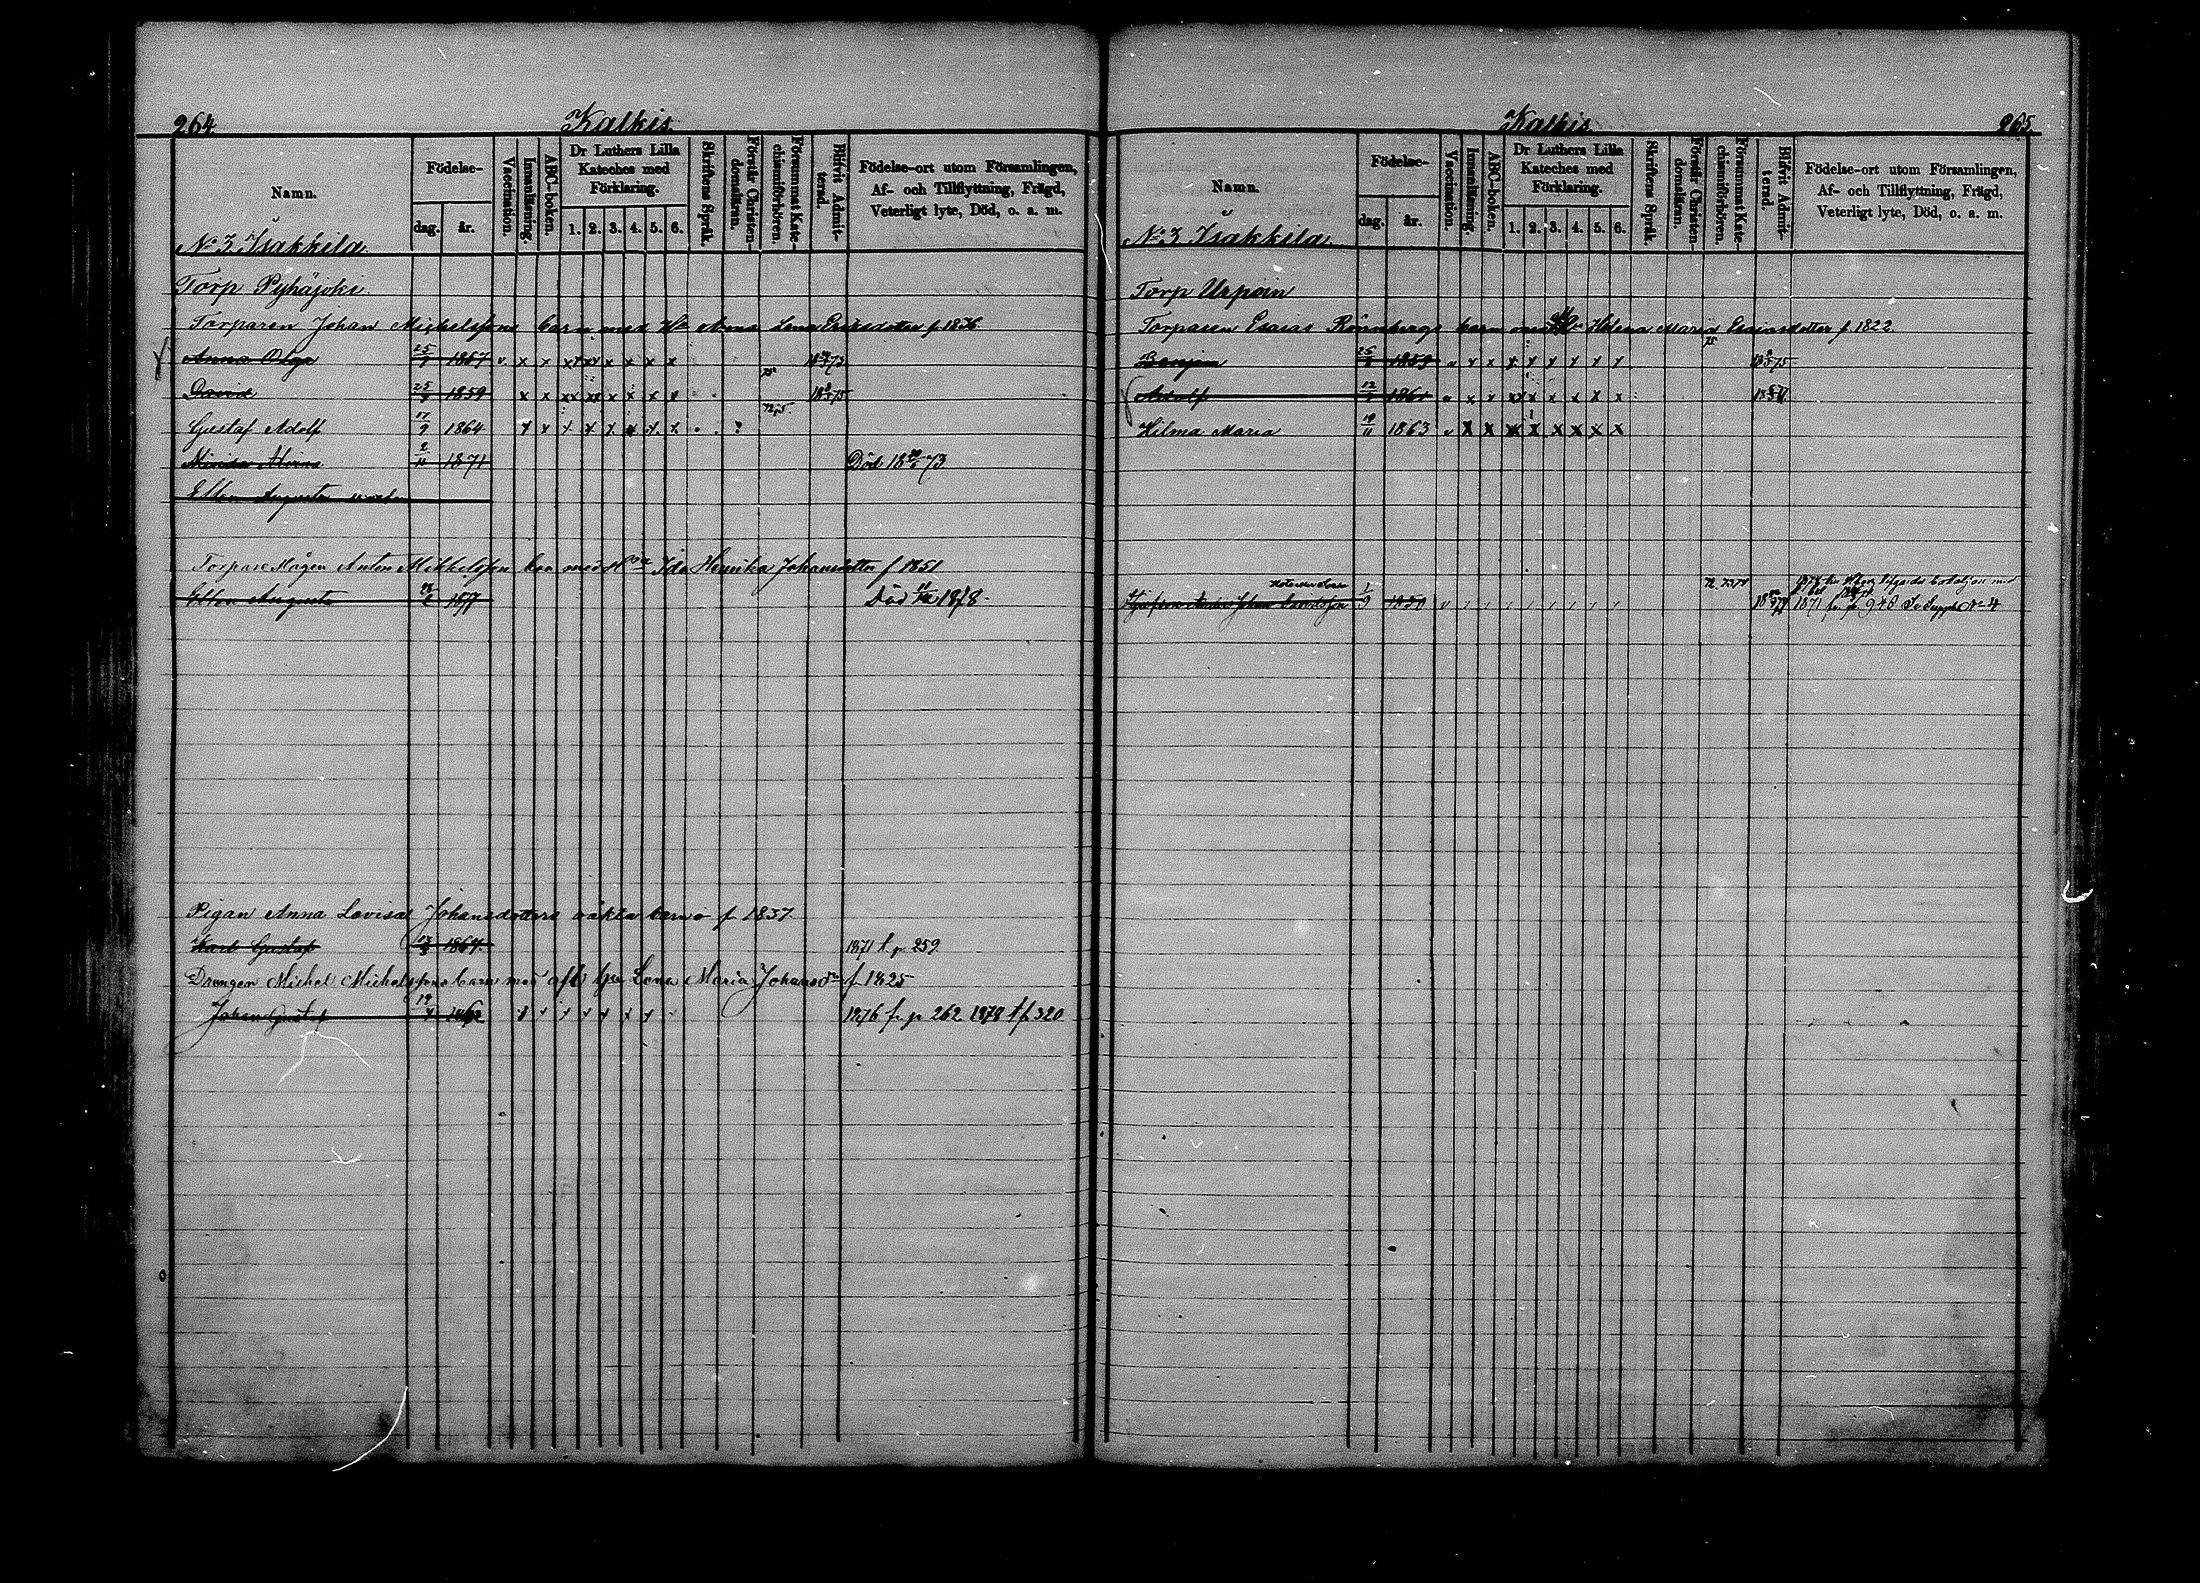 264
Kalkis.
Namn.
Födelse-
dag.
år.
Vaccination.
Innanläsning.
ABC-boken.
Dr Luthers Lilla
Kateches med
Förklaring.
1. 2. 3. 4. 5. 6.
Skriftens Språk.
Förstår Christen-
domsläran.
Försummat Kate-
chismiförhören.
Blifvit Admit-
terad.
Födelse-ort utom Församlingen,
Af- och Tillflyttning, Frägd,
Veterligt lyte, Död, o. a. m.
No 3 Isakkila.
Torp Pyhäjoki.
Torparen Johan Michelssons barn med Hu Anna Lena Eriksdotter f 1836.
Anna Olga 25 1857 v x x x x x x x x 18 73
David 25 1859 x x x x x x x x 75 18 75
Gustaf Adolf 17/9 1864 x x x x x x x x 72,75
Minda 2/11 1871 Död 18 73
Ellen Augusta
Torpare Mågen Anton Mikkelsson barn med Hu Ida Henrika Johansdotter f 1851
Ellen Augusta 1877 Död 1878.
Pigan Anna Lovisa Johansdotters oäkta barn f 1837
Karl Gustaf 1867. 1871 t. p 259
Drengen Michel Michelssons barn med afl. Hu Lena Maria Johansdr f 1825
Johan Gustaf 19 1862 x x x x x x x 1876 fr. p 262 1878 t p 320
265.
Kalkis
Namn.
Födelse-
dag.
år.
Vaccination.
Innanläsning.
ABC-boken.
Dr Luthers Lilla
Kateches med
Förklaring.
1. 2. 3. 4. 5. 6.
Skriftens Språk.
Förstår Christen-
domsläran.
Försummat Kate-
chismiförhören.
Blifvit Admit-
terad.
Födelse-ort utom Församlingen,
Af- och Tillflyttning, Frägd,
Veterligt lyte, Död, o. a. m.
No 3 Isakkila.
Torp Urpoin
Torparen Esaias Rönnbergs barn med Hu Helena Maria Esaiasdotter f. 1822.
Benjam 1859 v x x x x x x x x 75 18 75
Adolf 12 1861 v x x x x x x x x
Hilma Maria 19/11 1863 v x x x x x x x x
Johan 1/9 1850 72. 73. 74 18
1871 fr. p. 948 Se Suppl No 4